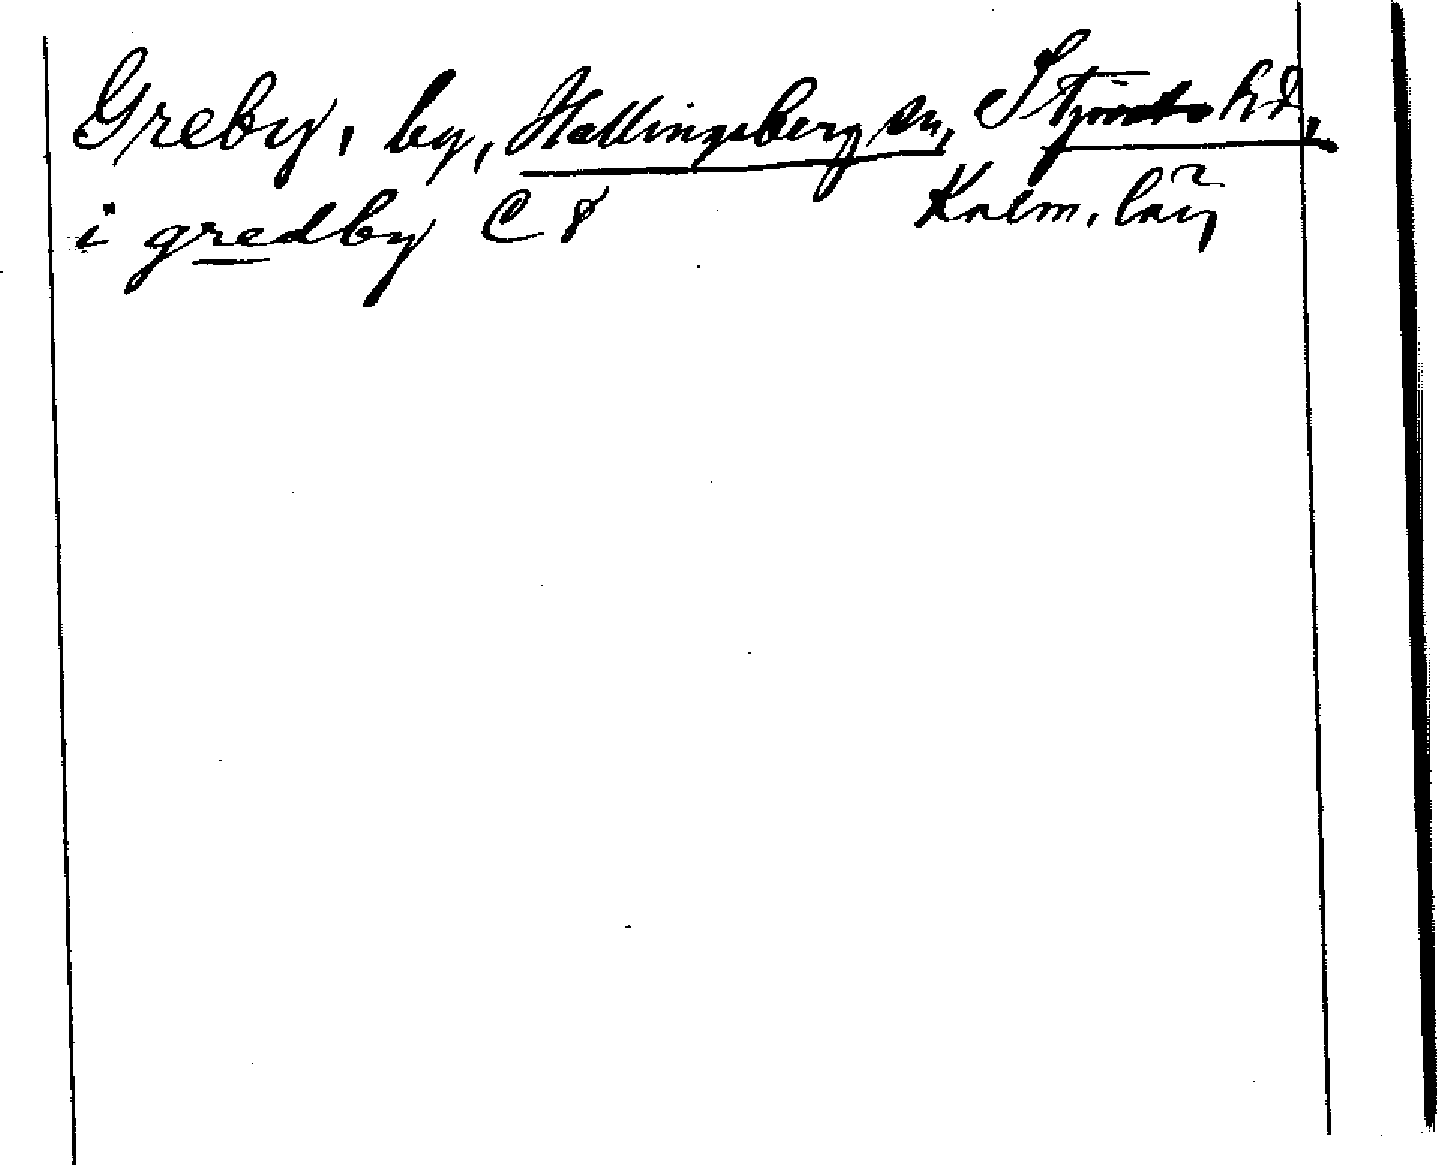 Greby, by, Hallingeberg sn, Tjusts hd,
i gredby C 8 Kalm. län